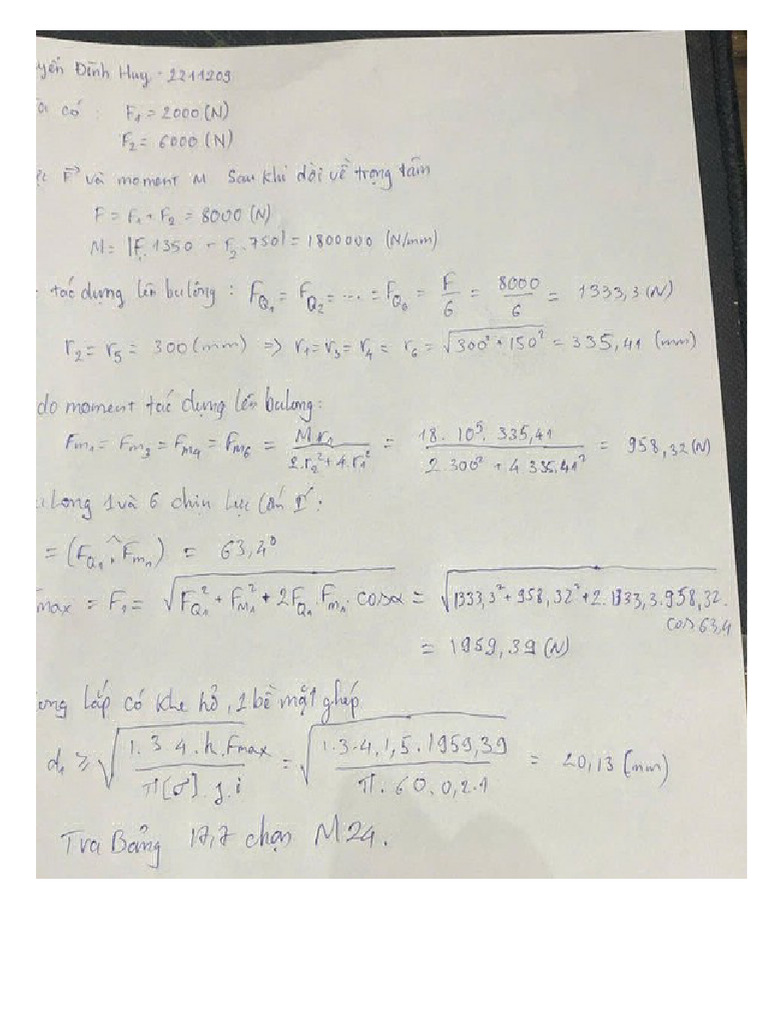 yễn Đình Huy - 2211203
có : F₁ = 2000 (N)
F₂ = 6000 (N)
F⃗ và moment M sau khi dời về trọng tâm
F = F₁ + F₂ = 8000 (N)
M = |F₁.1350 - F₂.750| = 1800000 (N/mm)
tác dụng lên bulông : F_Q₁ = F_Q₂ = .... = F_Q₆ = F/6 = 8000/6 = 1333,3 (N)
r₂ = r₅ = 300 (mm) => r₁ = r₃ = r₄ = r₆ = √(300² + 150²) = 335,41 (mm)
do moment tác dụng lên bulong :
Fm₁ = Fm₃ = Fm₄ = Fm₆ = M.r₁/(2.r₂² + 4.r₁²) = 18.10⁵.335,41/(2.300² + 4.335,41²) = 958,32 (N)
Long 1 và 6 chịu lực lớn :
= (F_Q₁, Fm₁) = 63,4⁰
max = F₁ = √(F_Q₁² + F_M₁² + 2F_Q₁.Fm₁.cosα) = √(1333,3² + 958,32² + 2.1333,3.958,32.
cos 63,4
= 1959,39 (N)
ong lắp có khe hở, 2 bề mặt ghép
d₁ ≥ √(1.3.4.k.Fmax/(π[σ].f.i)) = √(1.3.4.1,5.1959,39/(π.60.0,2.1)) = 20,13 (mm)
Tra Bảng 17,7 chọn M24.